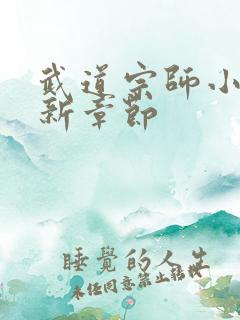 武道宗師小
新章節
睡覺的人生
未任同意禁止转载